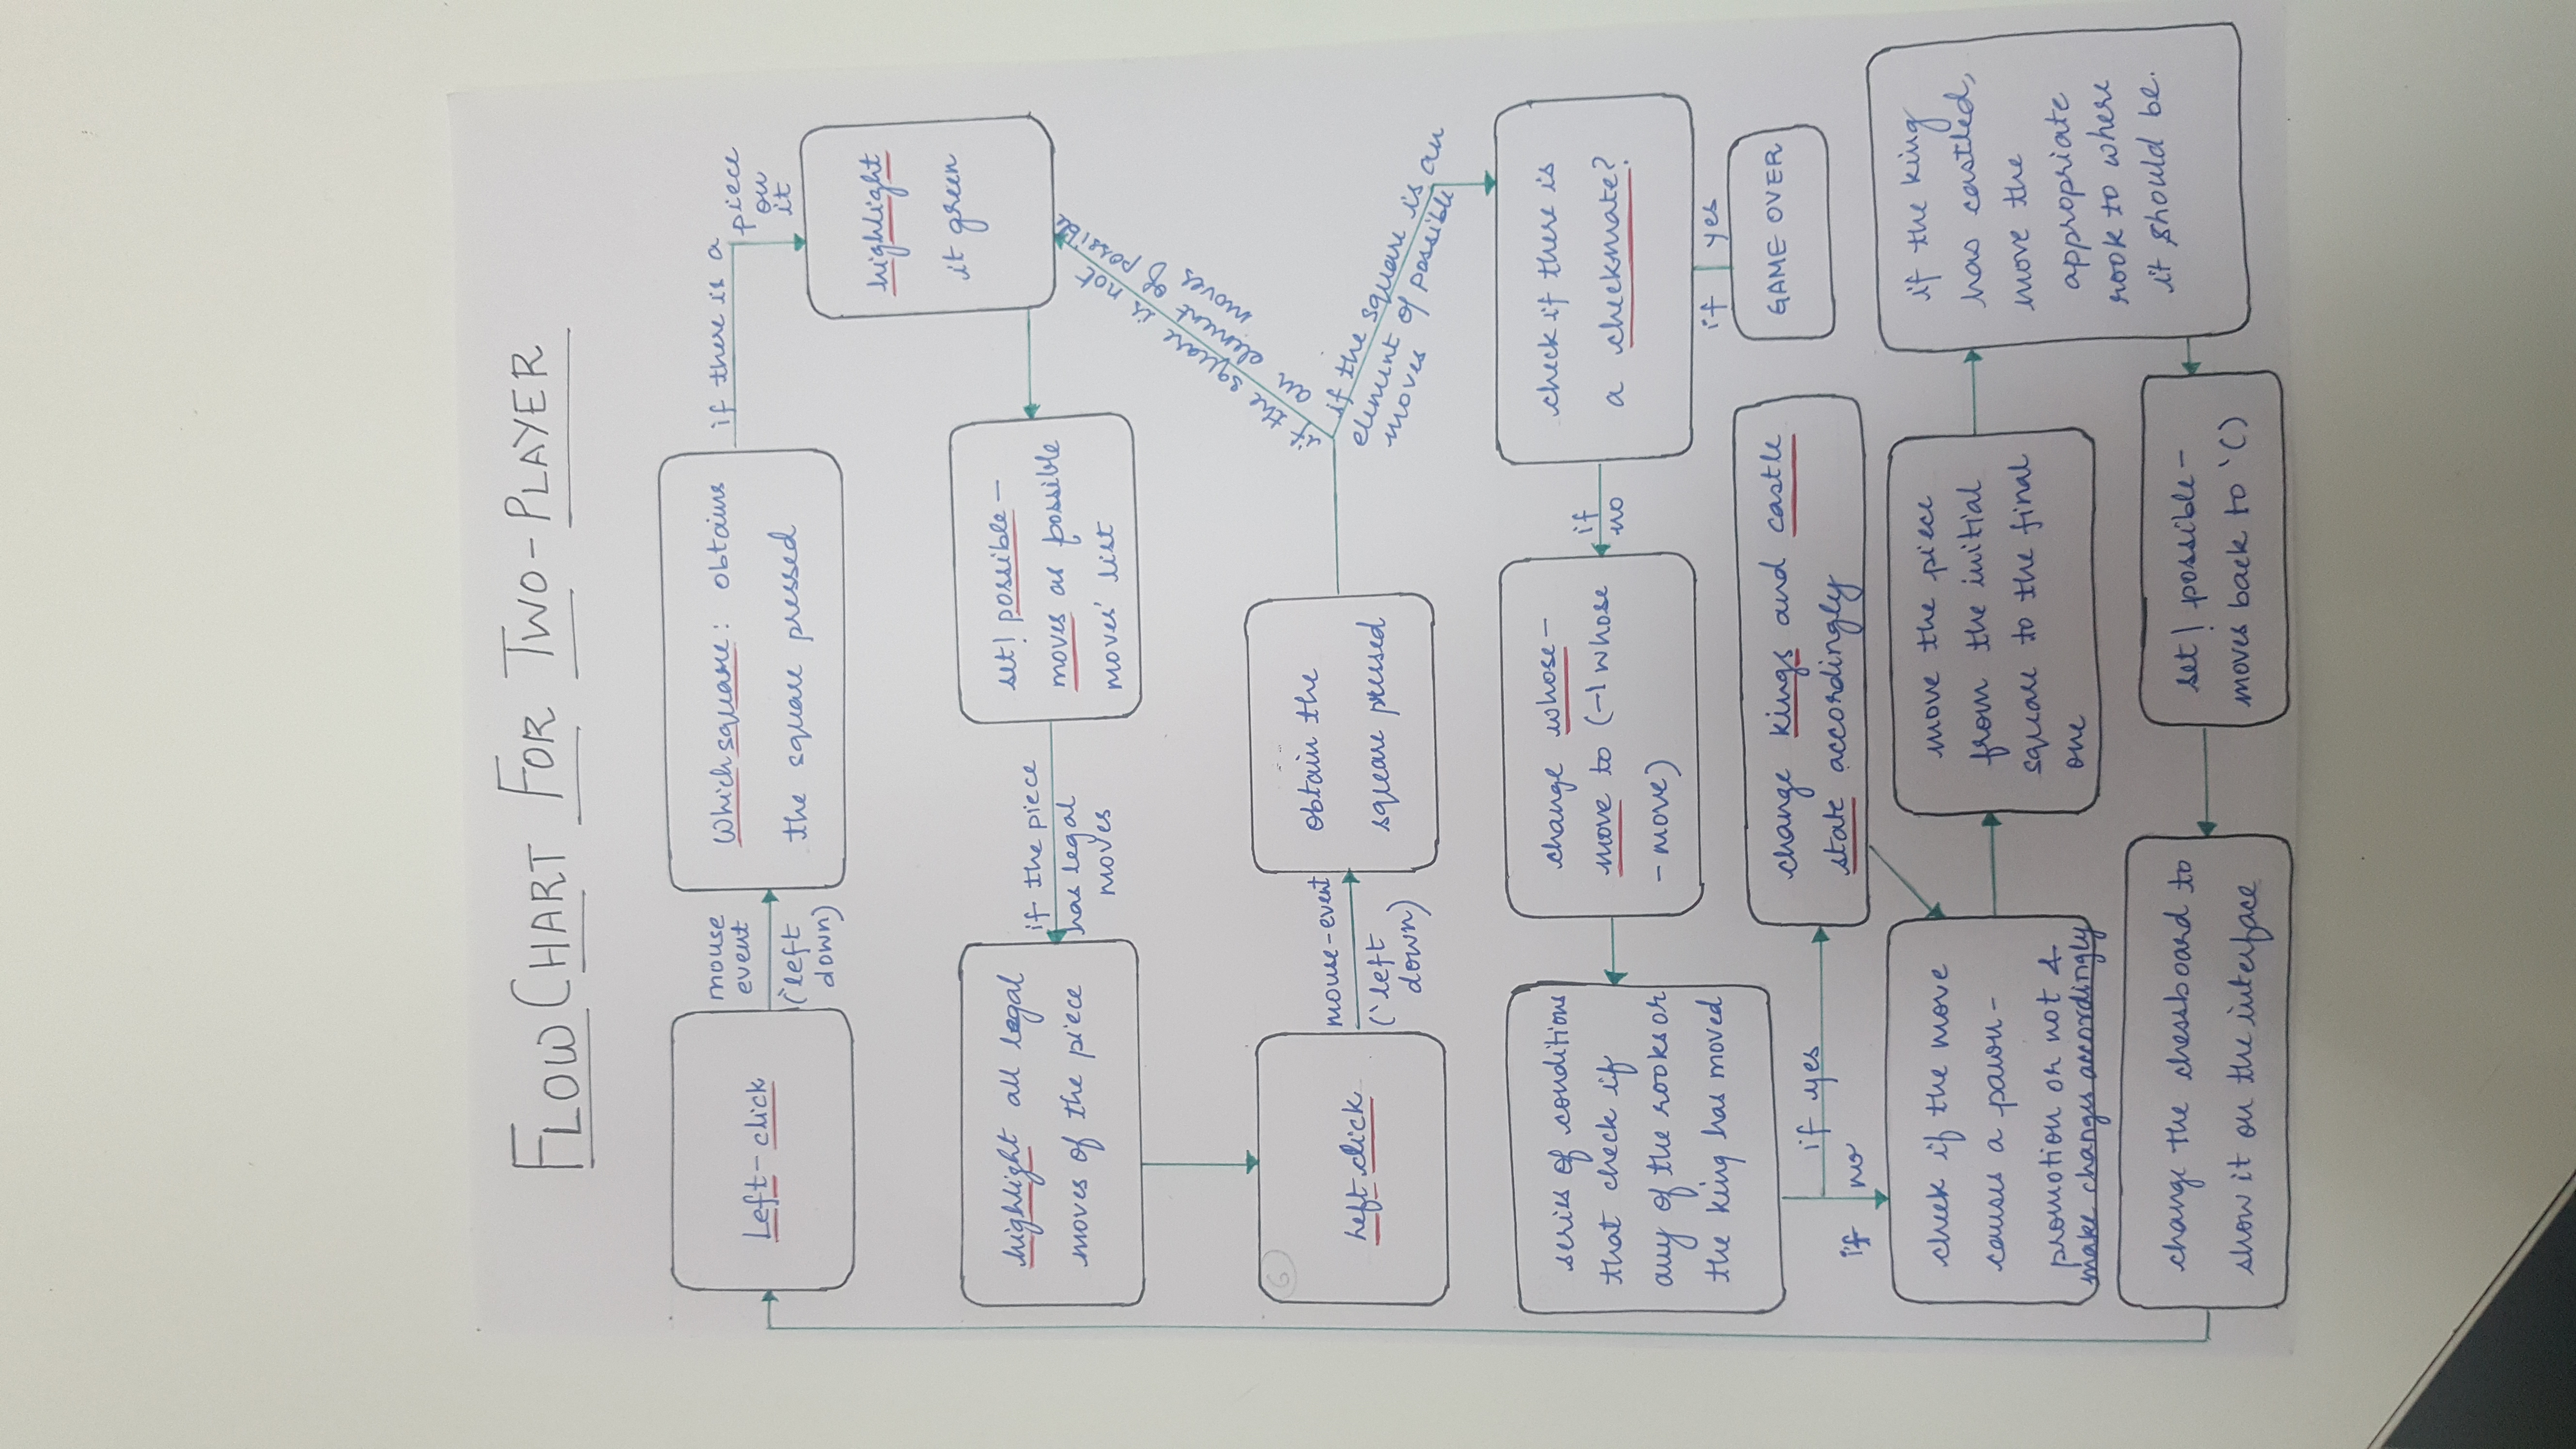 FLOWCHART FOR TWO-PLAYER
Left-click
mouse
event
('left
down)
Whichsquare: obtains
the square pressed
if there is a
piece
on
it
highlight
it green
set! possible-
moves as possible
moves' list
if the piece
has legal
moves
highlight all legal
moves of the piece
6
Left click
mouse-event
('left
down)
obtain the
square pressed
if the square is not
an element of possible
moves
if the square is an
element of possible
moves
check if there is
a checkmate?
if
no
if yes
GAME OVER
change whose-
move to (-1 whose
-move)
series of conditions
that check if
any of the rooks or
the king has moved
if yes
if no
change kings and castle
state accordingly
check if the move
causes a pawn-
promotion or not &
make changes accordingly
move the piece
from the initial
square to the final
one
if the king
has castled,
move the
appropriate
rook to where
it should be.
set! possible-
moves back to '()
change the chessboard to
show it on the interface